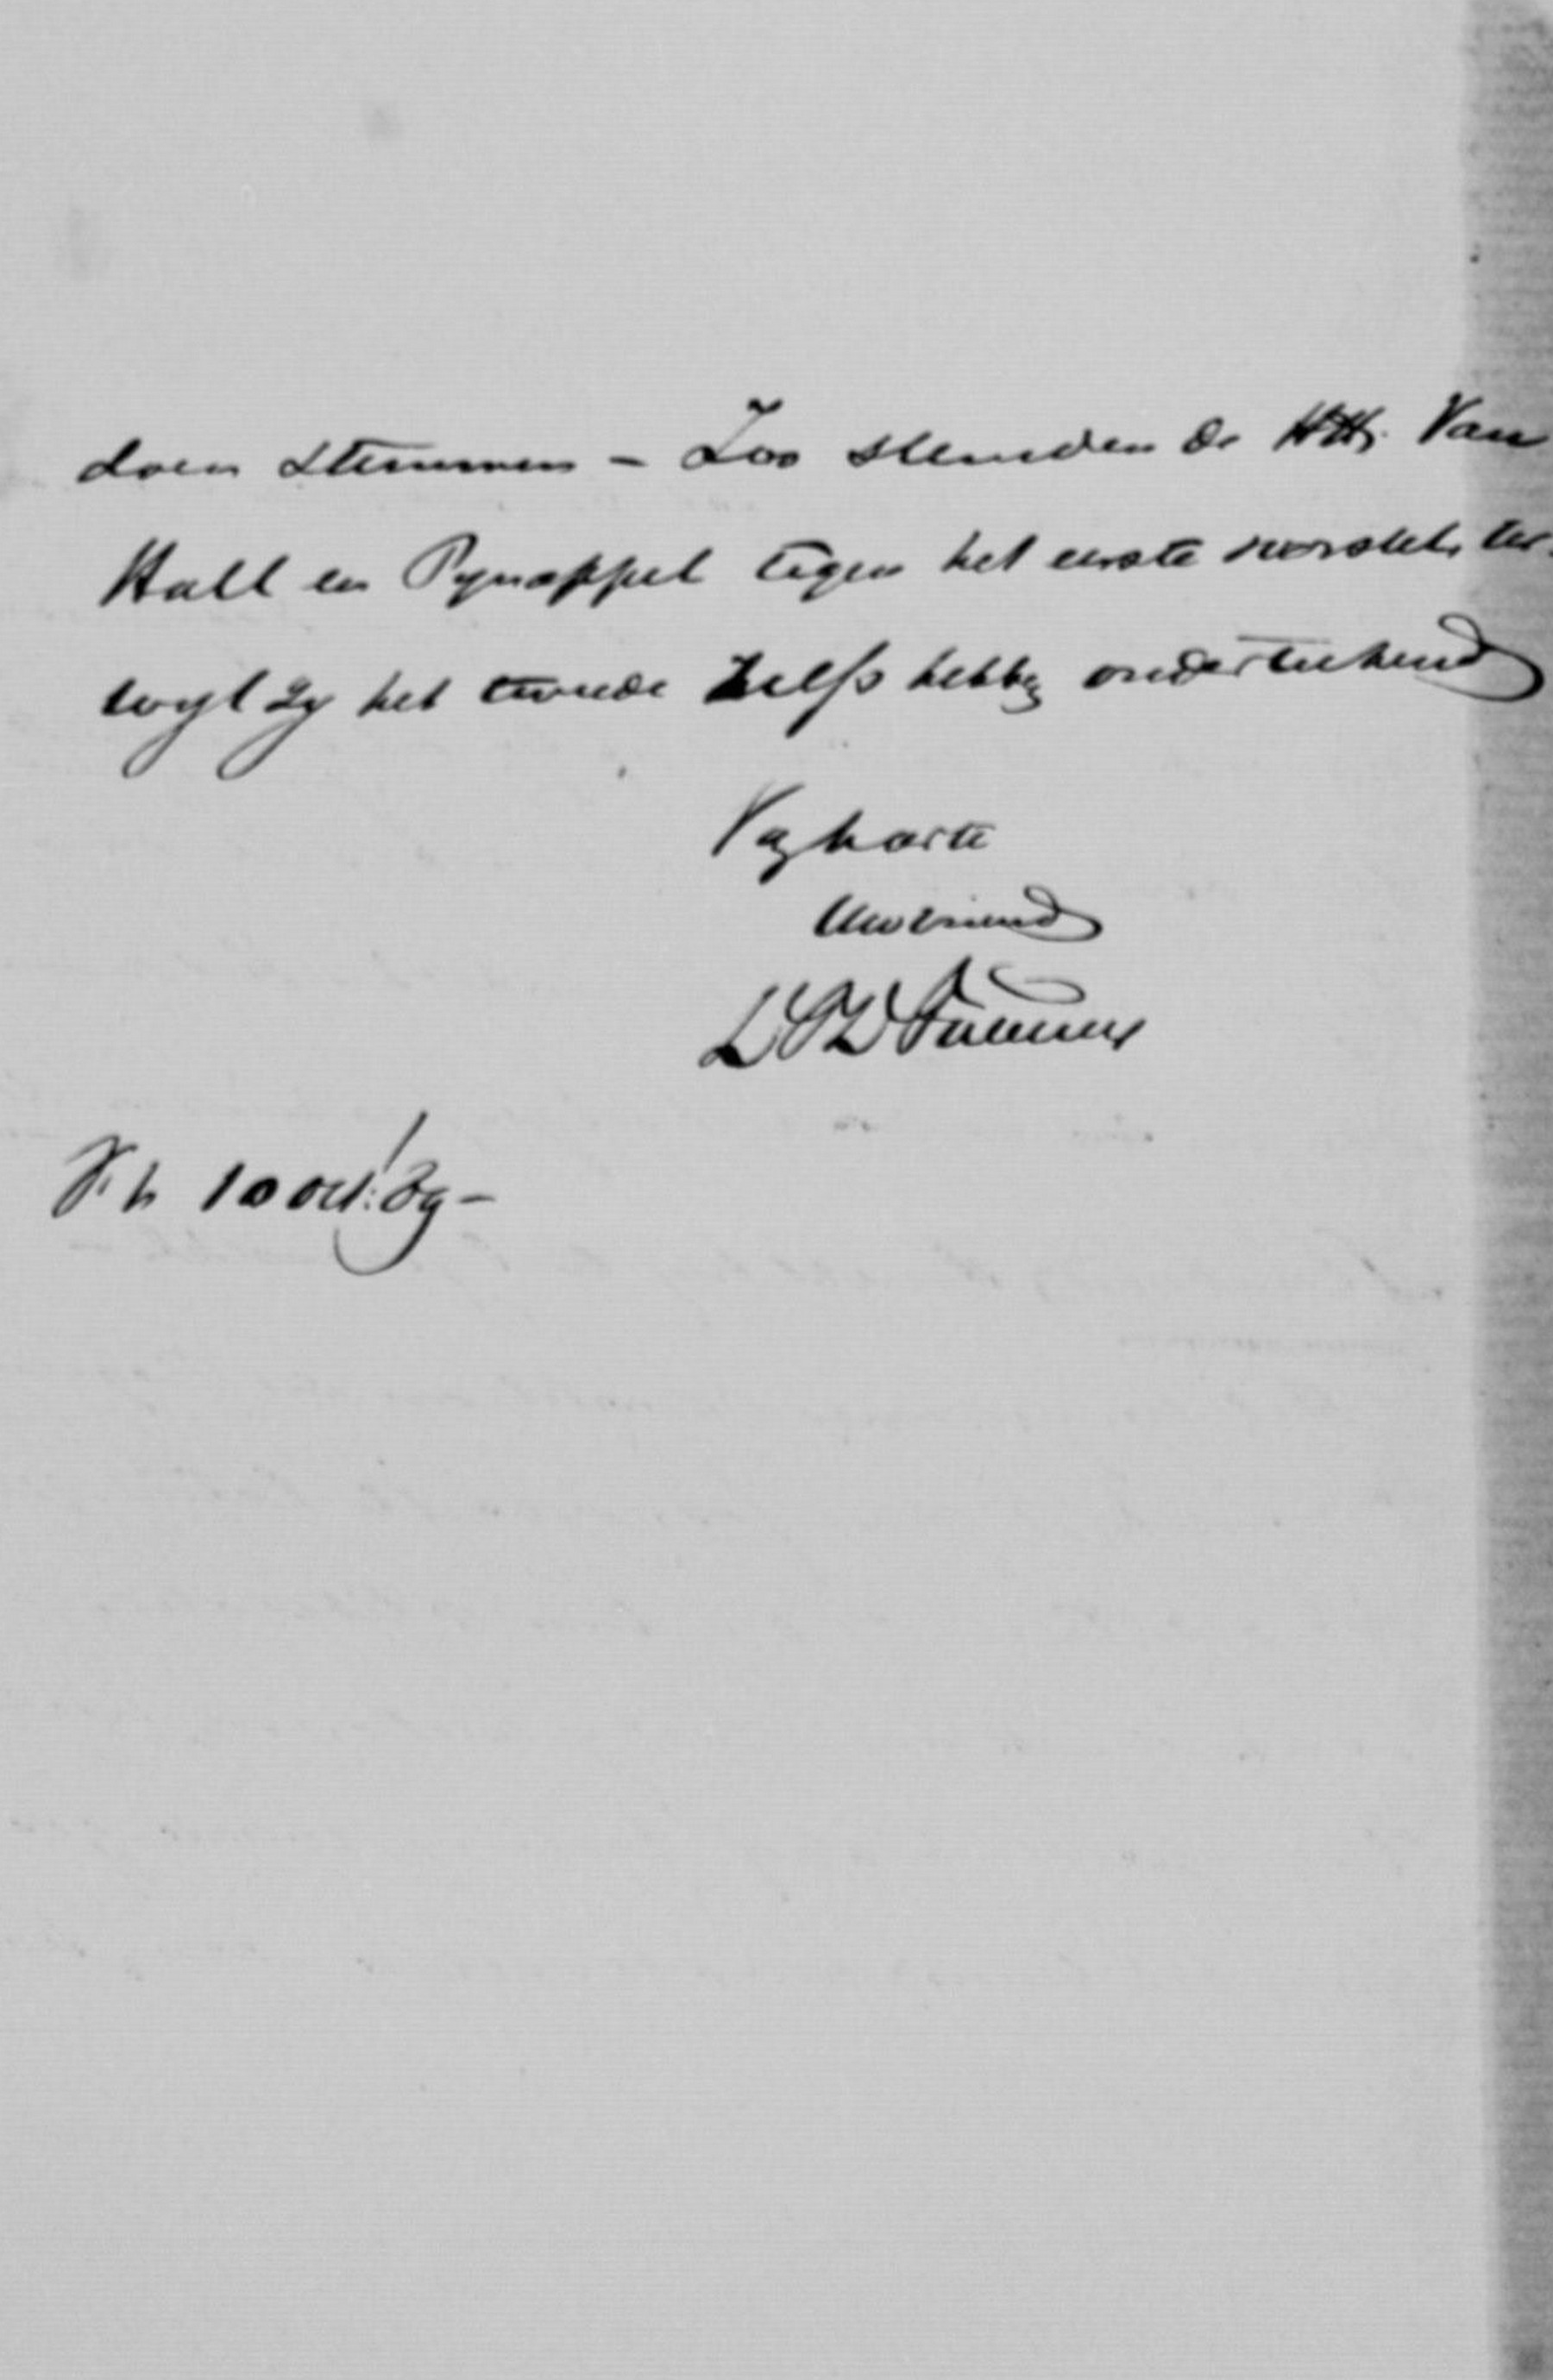 doen stemmen - Zoo stemden de HH. Van
Hall en Pynappel tegen het eerste voorstel, ter-
wyl zy het tweede zelfs hebben onderteekend
Van harte
Uw vriend
10 Oct: 89 -